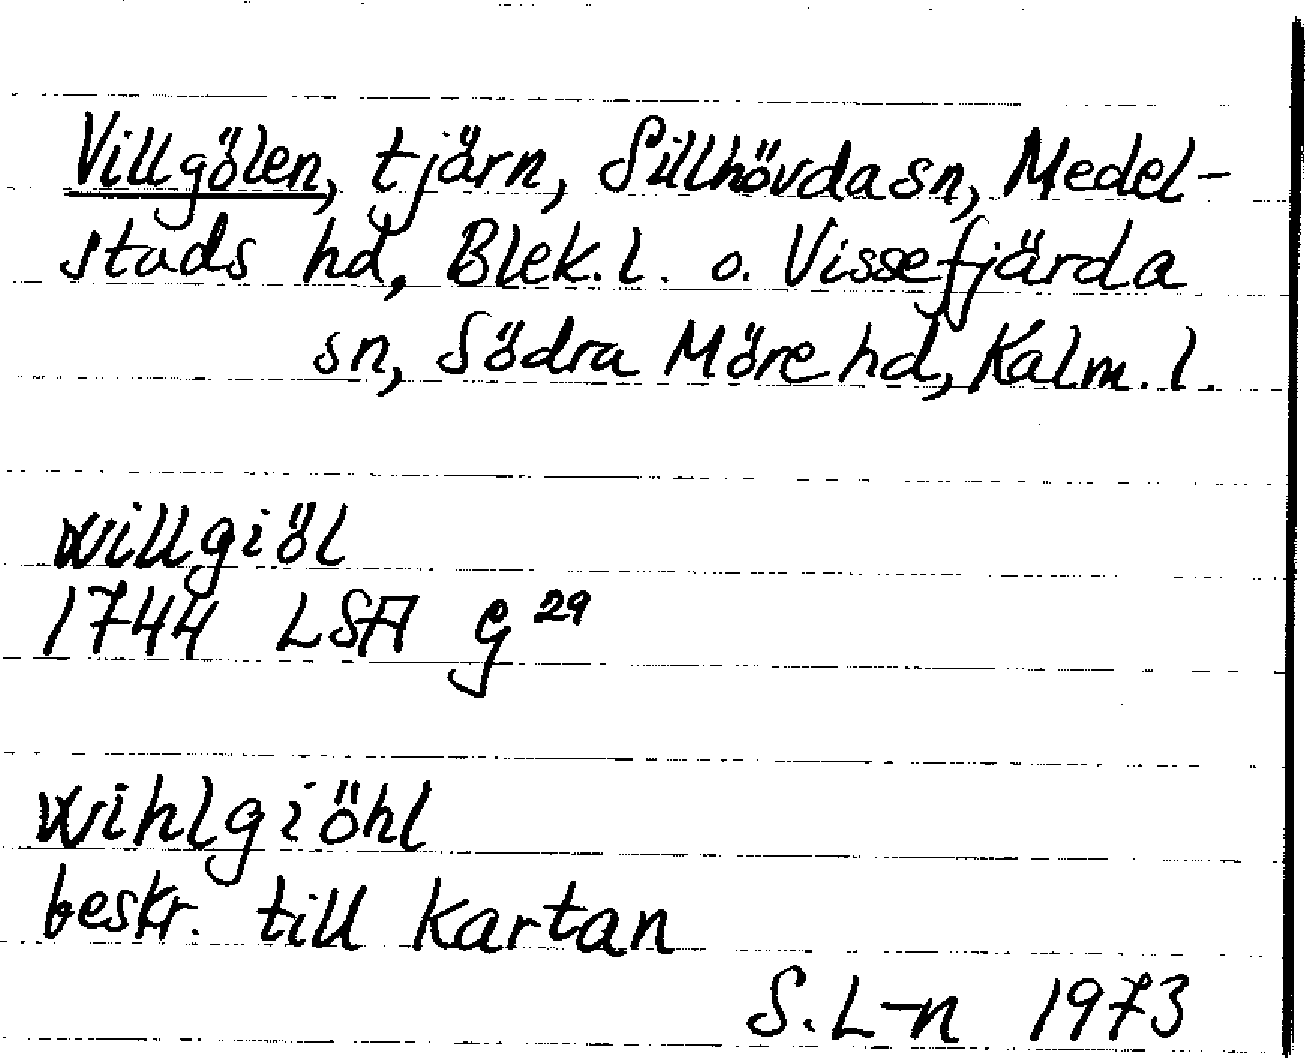 Villgölen, tjärn, Sillhövda sn, Medel-
stads hd, Blek. l. o. Vissefjärda
sn, Södra Möre hd, Kalm. l.
willgiöl
1744 LSA G 29
wihlgiöhl
beskr. till kartan
S. L-n 1973